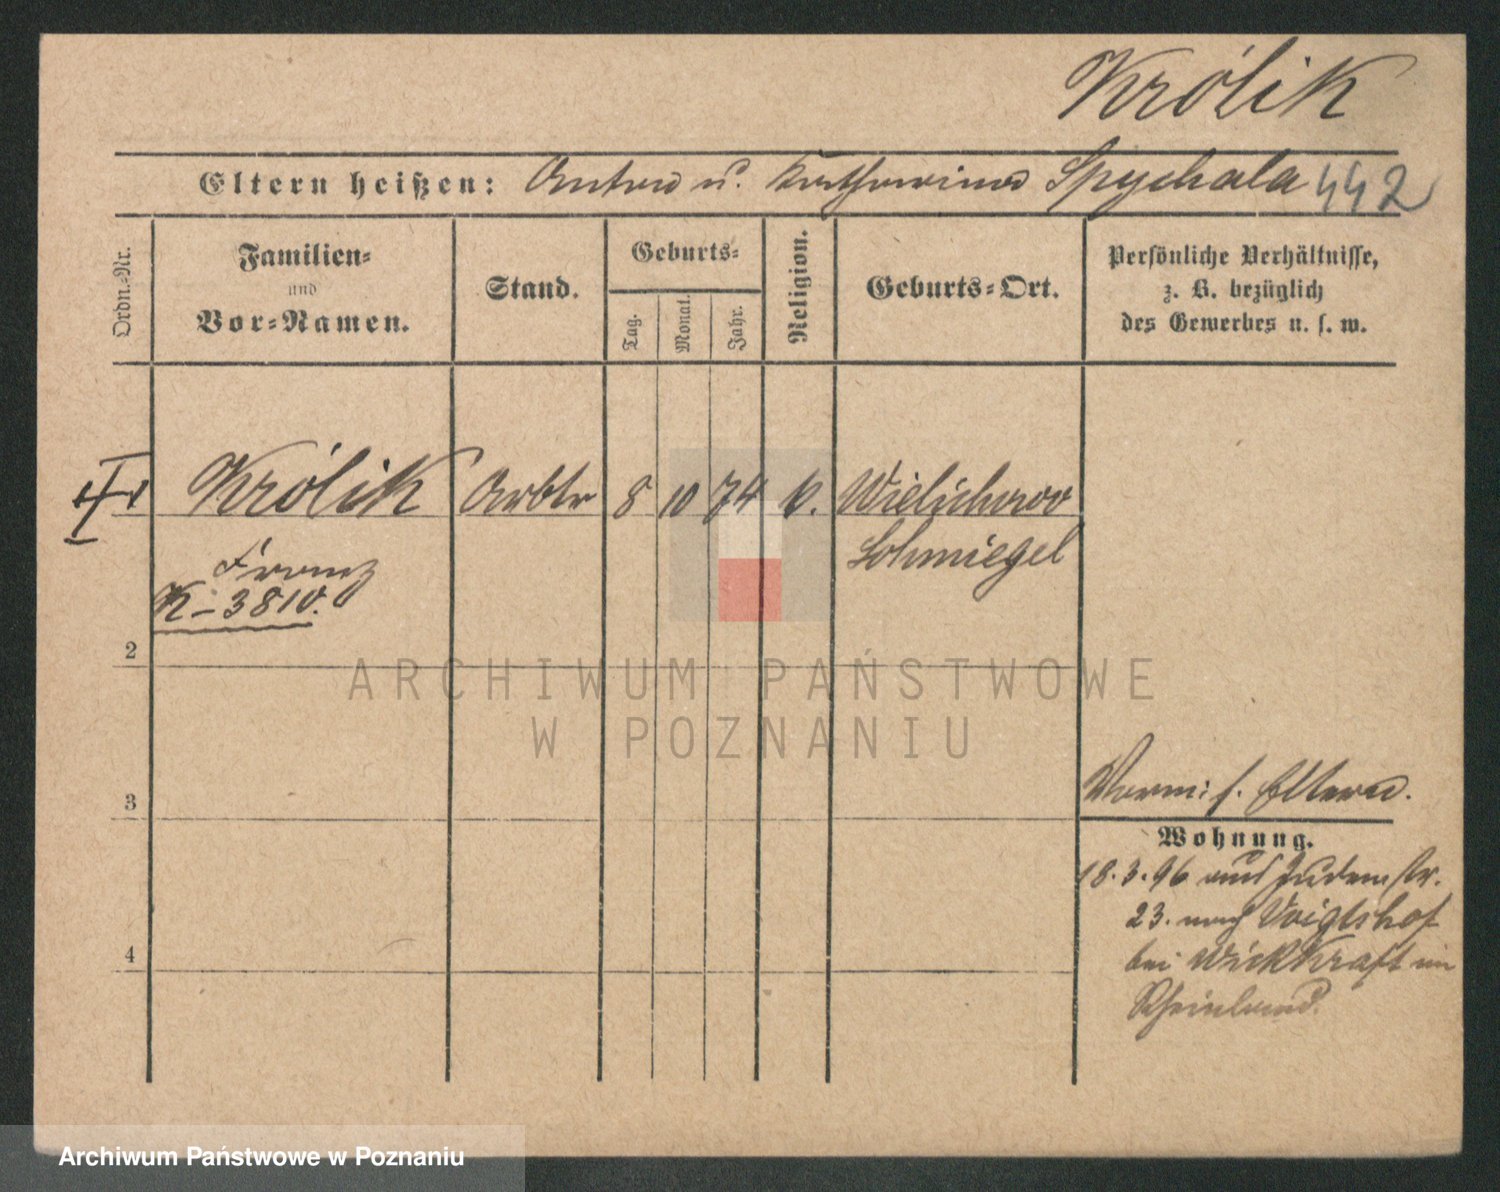 Królik
Eltern heißen: Anton u. Katharina Spychala 442
Ordn.-Nr.
Familien-
und
Vor-Namen.
Stand.
Geburts-
Tag.
Monat.
Jahr.
Religion.
Geburts-Ort.
Persönliche Verhältnisse,
z. B. bezüglich
des Gewerbes u. s. w.
Królik Arbtr 8 10 74 k. Wielichowo
Schmiegel
Franz
K-3810.
2
3
4
Vorm: s. Eltern.
Wohnung.
18.3.96 aus Judenstr.
23. nach Voigtshof
bei Wickkraft im
Rheinland.
ARCHIWUM PAŃSTWOWE
W POZNANIU
Archiwum Państwowe w Poznaniu